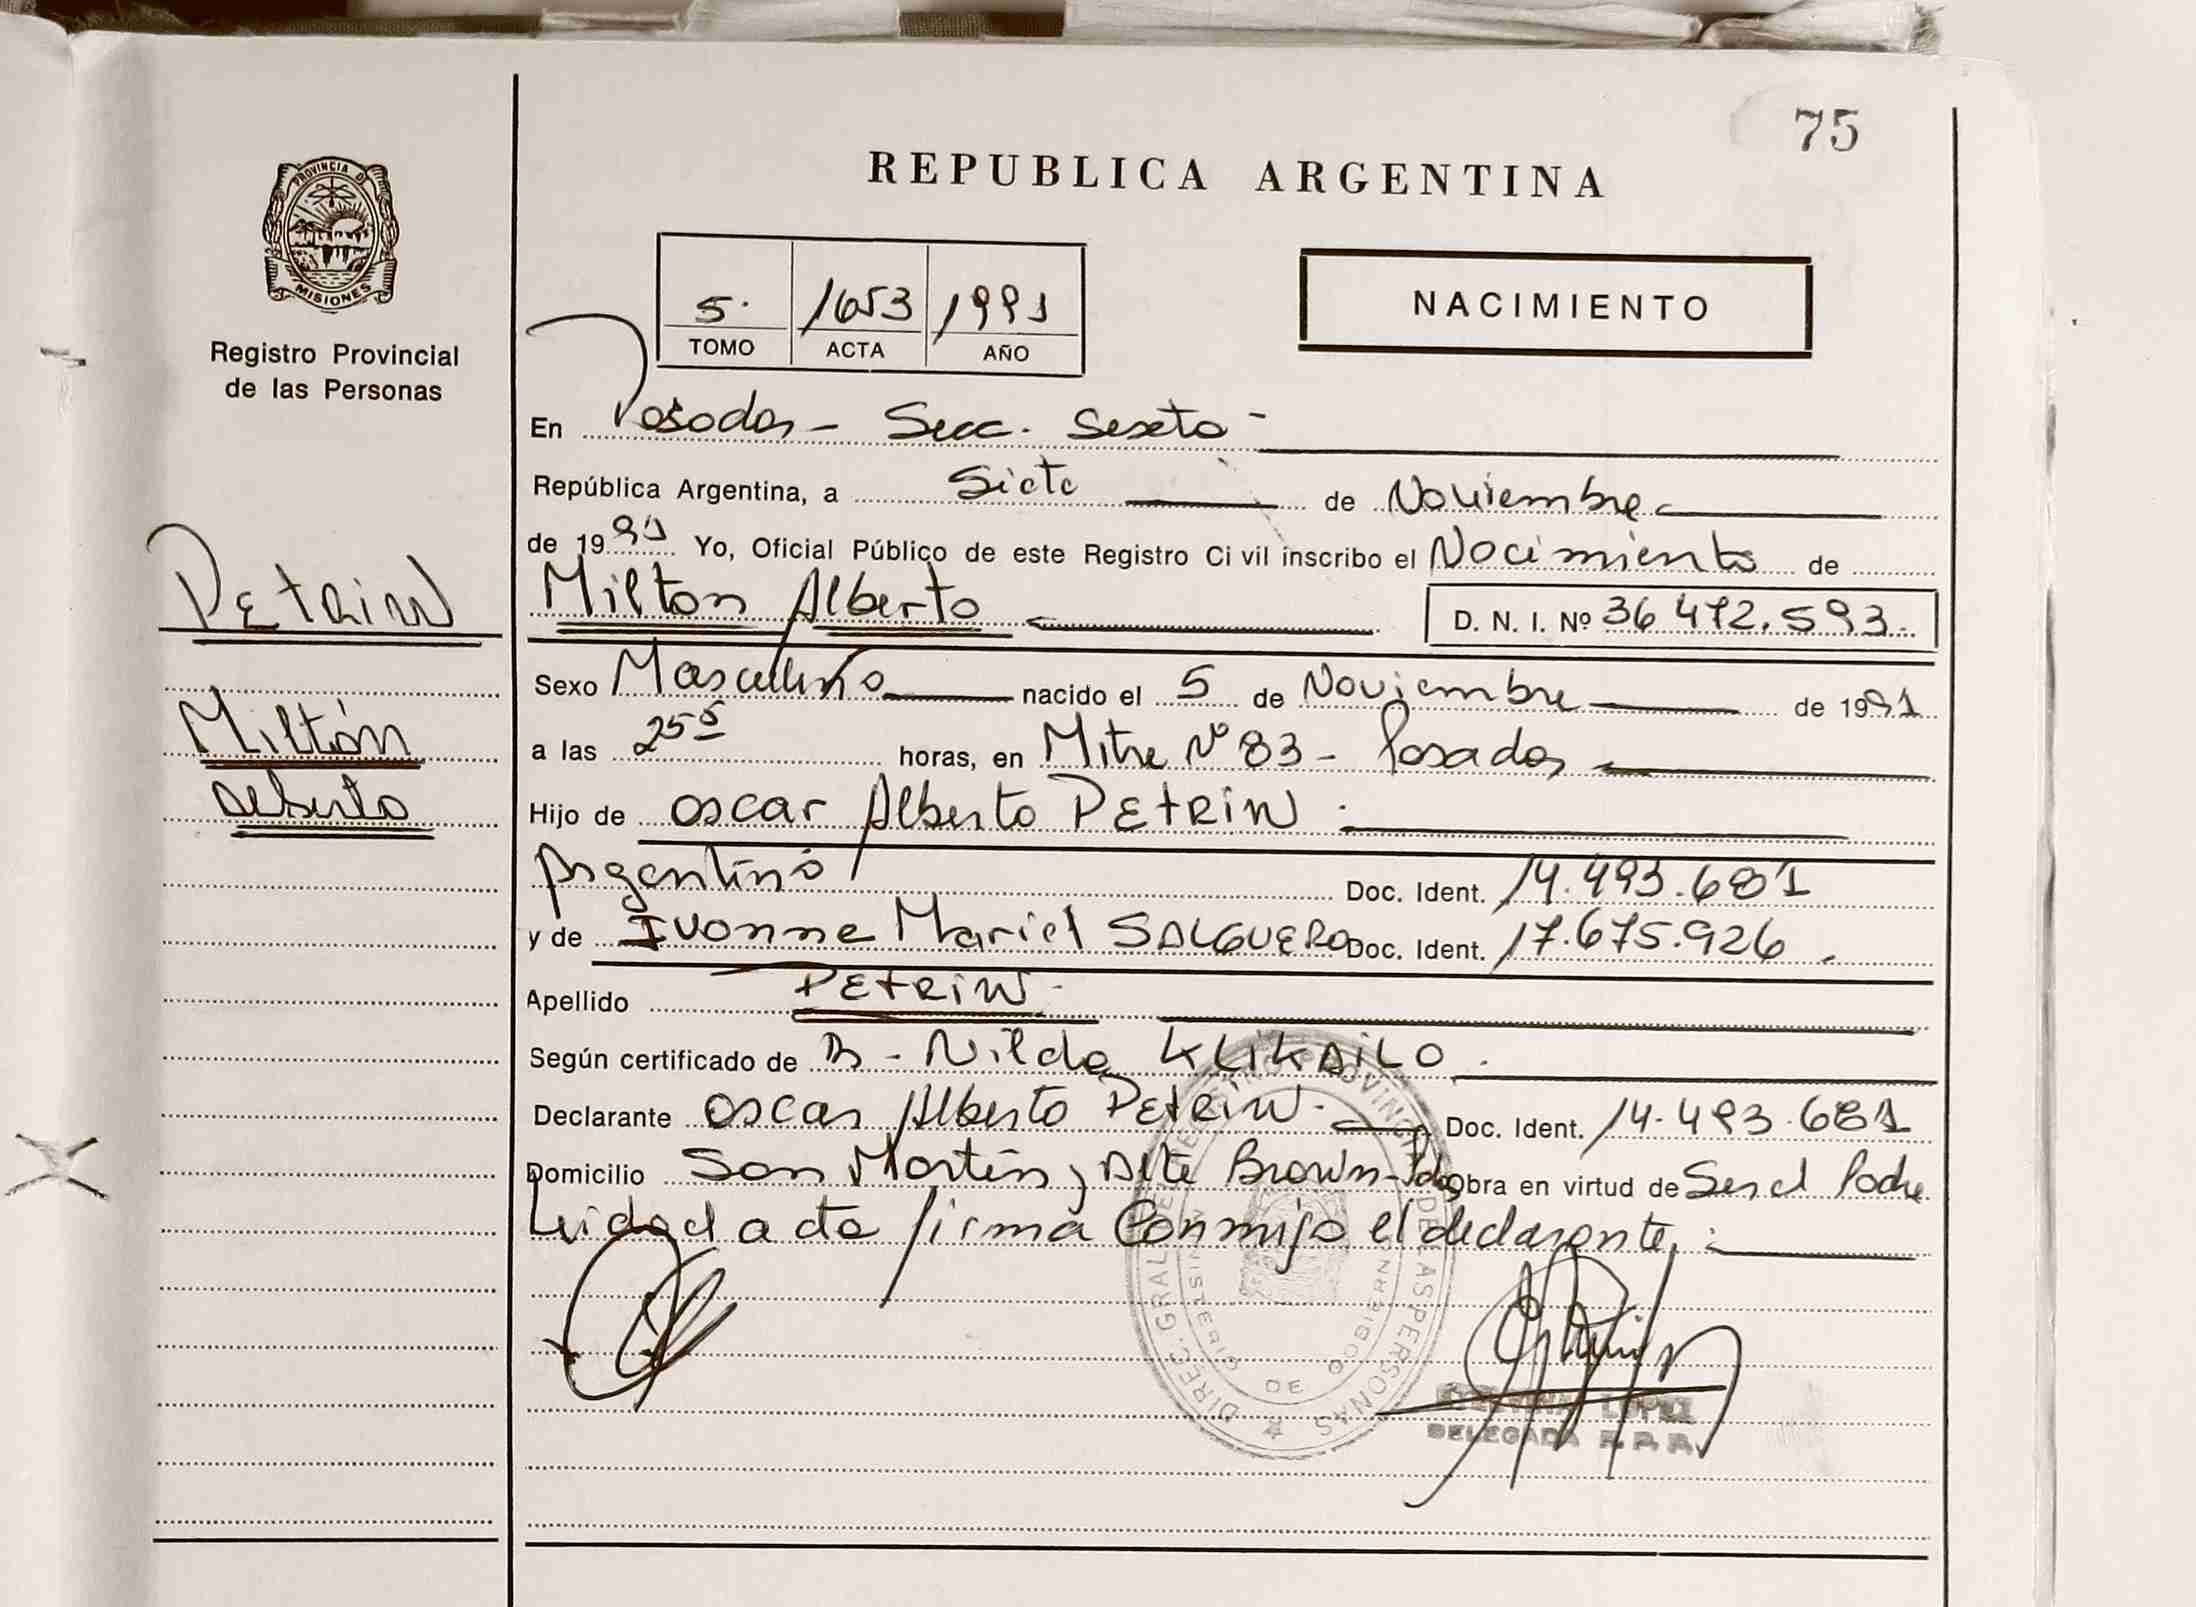 75
REPUBLICA ARGENTINA
PROVINCIA D
MISIONES
Registro Provincial
de las Personas
5. 1653 1991
TOMO ACTA AÑO
NACIMIENTO
En Posadas - Secc. Sexta -
República Argentina, a Siete de Noviembre
de 1991 Yo, Oficial Público de este Registro Civil inscribo el Nacimiento de
Petrin
Milton Alberto D. N. I. Nº 36 472.593.
Sexo Masculino nacido el 5 de Noviembre de 1991
Miltón
a las 25 horas, en Mitre Nº 83 - Posadas
Alberto
Hijo de Oscar Alberto Petrin.
Argentino Doc. Ident. 14.493.681
y de Ivonne Mariel SALGUERO Doc. Ident. 17.675.926.
Apellido Petrin.
Según certificado de Nilda KLIKAILO.
Declarante Oscar Alberto Petrin. Doc. Ident. 14.493.681
Domicilio San Martín y Alte Brown - Pdas Obra en virtud de Ser el Padre
Leida el acta firma Conmigo el declarante.
DIREC. GRAL. DE REGISTRO PROVINCIAL DE LAS PERSONAS
MINISTERIO DE GOBIERNO
LOPEZ
DELEGADA R.P.P.